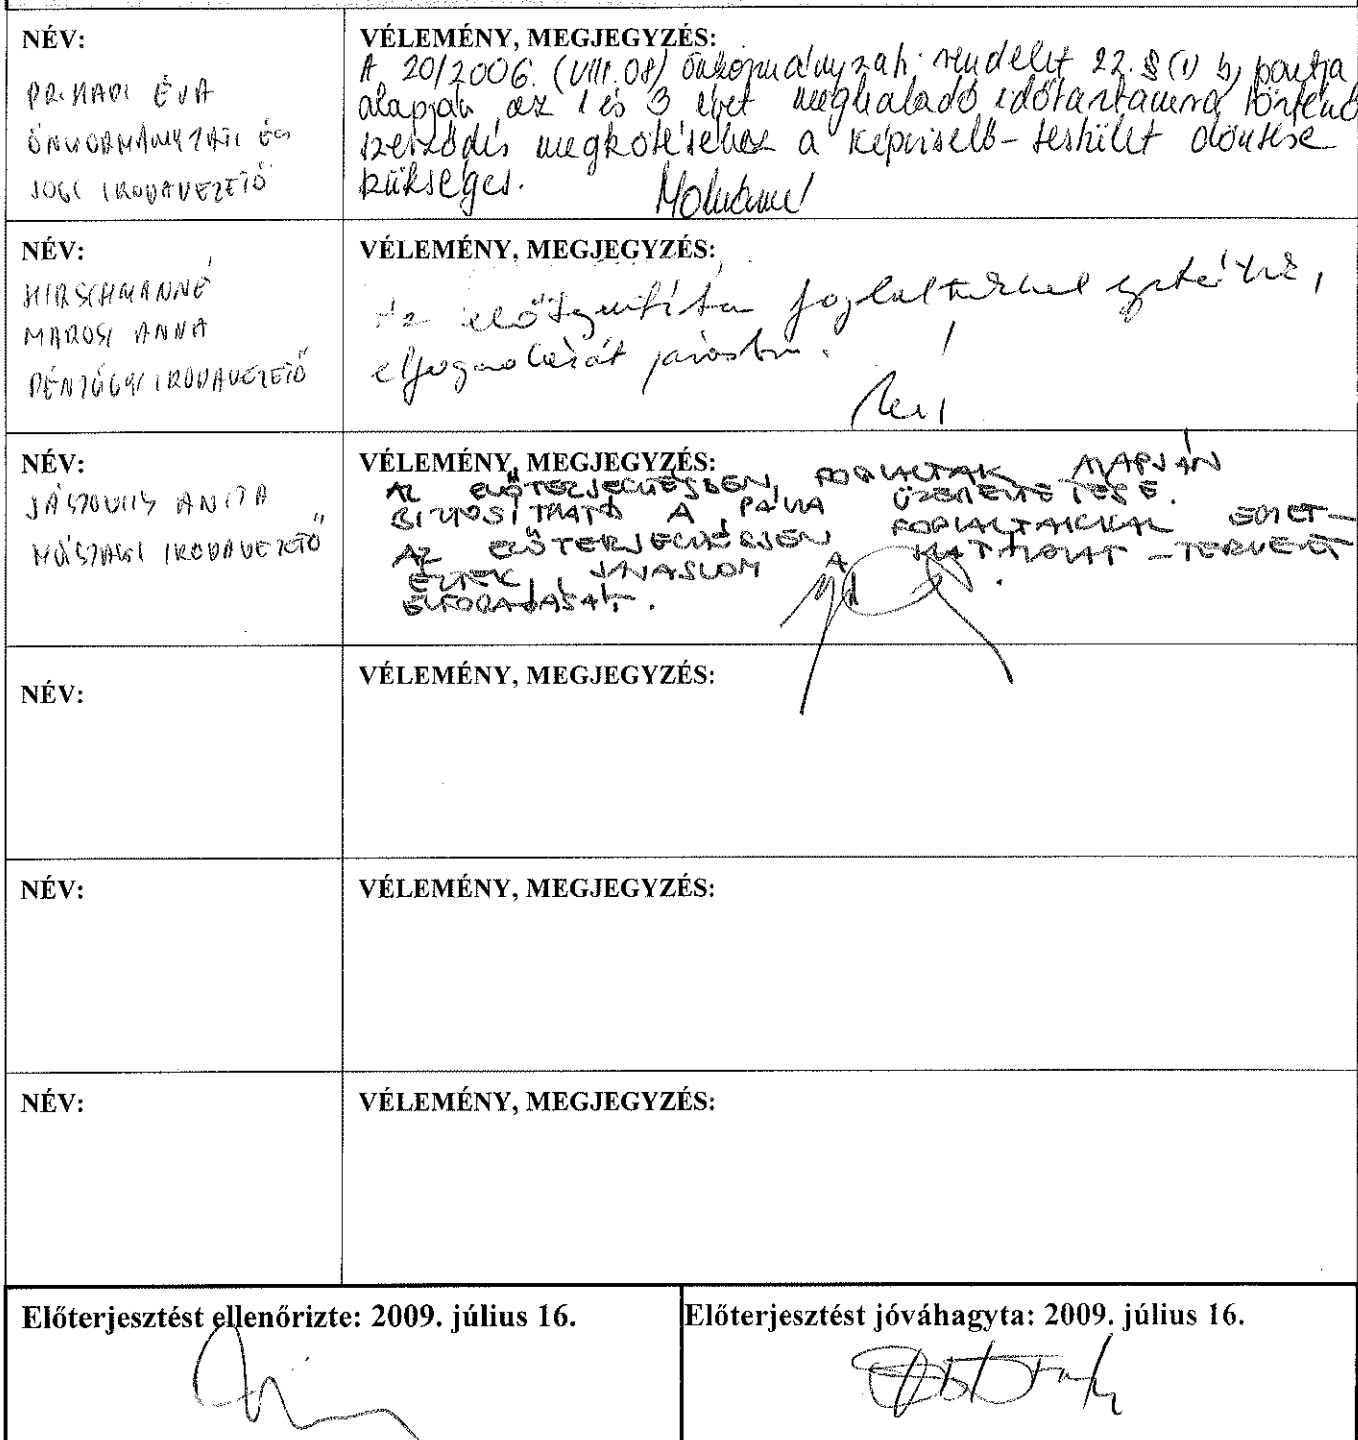 NÉV:
DR. MADI ÉVA
ÖNKORMÁNYZATI ÉS
JOGI IRODAVEZETŐ
VÉLEMÉNY, MEGJEGYZÉS:
A 20/2006. (VIII.08) önkormányzati rendelet 22. § (1) b, pontja
alapján az 1 és 3 évet meghaladó időtartamra történő
szerződés megkötéséhez a képviselő-testület döntése
szükséges.
NÉV:
HIRSCHMANNÉ
MAROSI ANNA
PÉNZÜGYI IRODAVEZETŐ
VÉLEMÉNY, MEGJEGYZÉS:
Az foglaltakkal egyetértek,
elfogadását javaslom.
NÉV:
ANITA
MŰSZAKI IRODAVEZETŐ
VÉLEMÉNY, MEGJEGYZÉS:
AZ ELŐTERJESZTÉSBEN FOGLALTAK ALAPJÁN
BIZTOSÍTHATÓ A PÁLYA ÜZEMELTETÉSE.
AZ ELŐTERJESZTÉSBEN FOGLALTAKKAL EGYET-
ÉRTEK, JAVASLOM A HATÁROZAT-TERVEZET
ELFOGADÁSÁT.
NÉV:
VÉLEMÉNY, MEGJEGYZÉS:
NÉV:
VÉLEMÉNY, MEGJEGYZÉS:
NÉV:
VÉLEMÉNY, MEGJEGYZÉS:
Előterjesztést ellenőrizte: 2009. július 16.
Előterjesztést jóváhagyta: 2009. július 16.